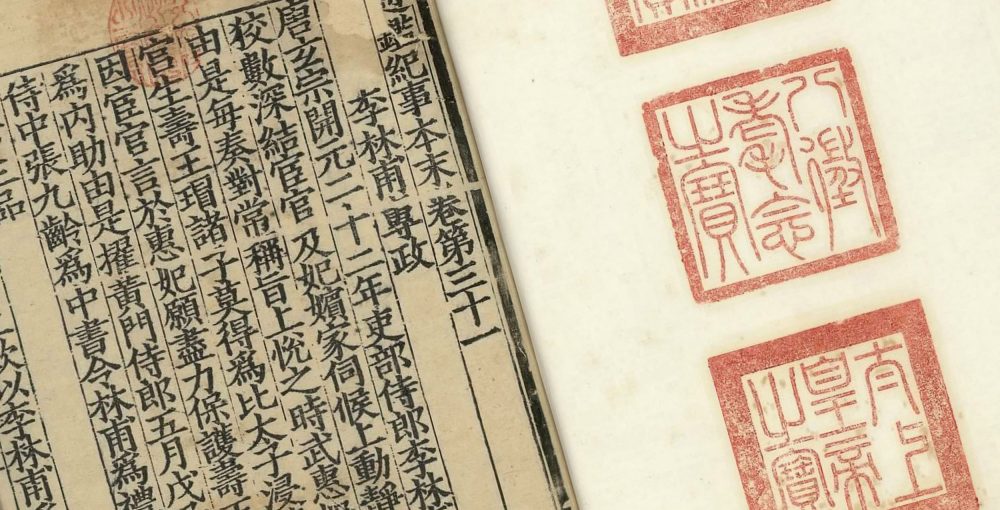 通鑑紀事本末卷第三十一
李林甫專政
唐玄宗開元二十二年吏部侍郎李林
狡數深結宦官及妃嬪家伺候上動靜
由是每奏對常稱旨上悅之時武惠妃
官生壽王瑁諸子莫得爲比太子浸
因宦官言於惠妃願盡力保護壽
爲內助由是擢黃門侍郎五月戊
侍中張九齡爲中書令林甫爲禮
三品
欲以李林甫
八徵耄念之寶
太上皇帝之寶